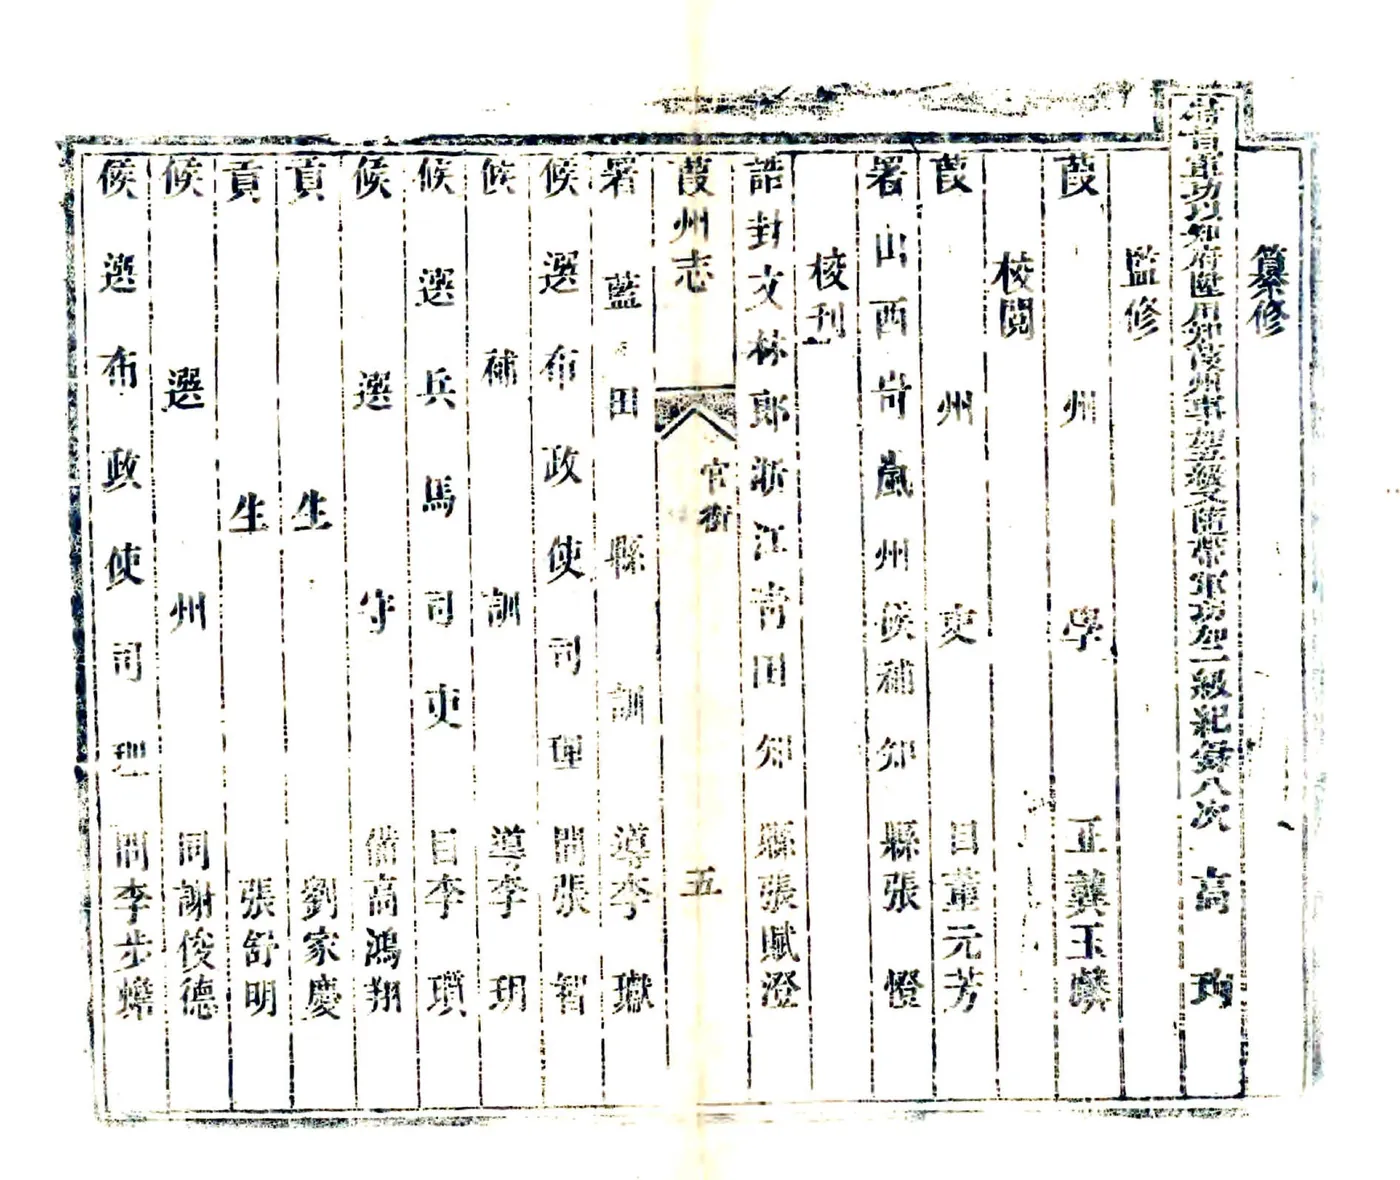 纂修
旨軍功以知府陞用知葭州事加級又隨帶軍功加一級紀錄八次高珣
監修
葭州學正龔玉麟
校閲
葭州吏目董元芳
署山西岢嵐州候補知縣張憕
校刊
誥封文林郎浙江青田知縣張賦澄
葭州志
官銜
五
署藍田縣訓導李嶽
候選布政使司理問張智
候補訓導李玥
候選兵馬司吏目李瓚
候選守備高鴻翔
貢生劉家慶
貢生張舒明
候選州同謝俊德
候選布政使司理問李步蟾